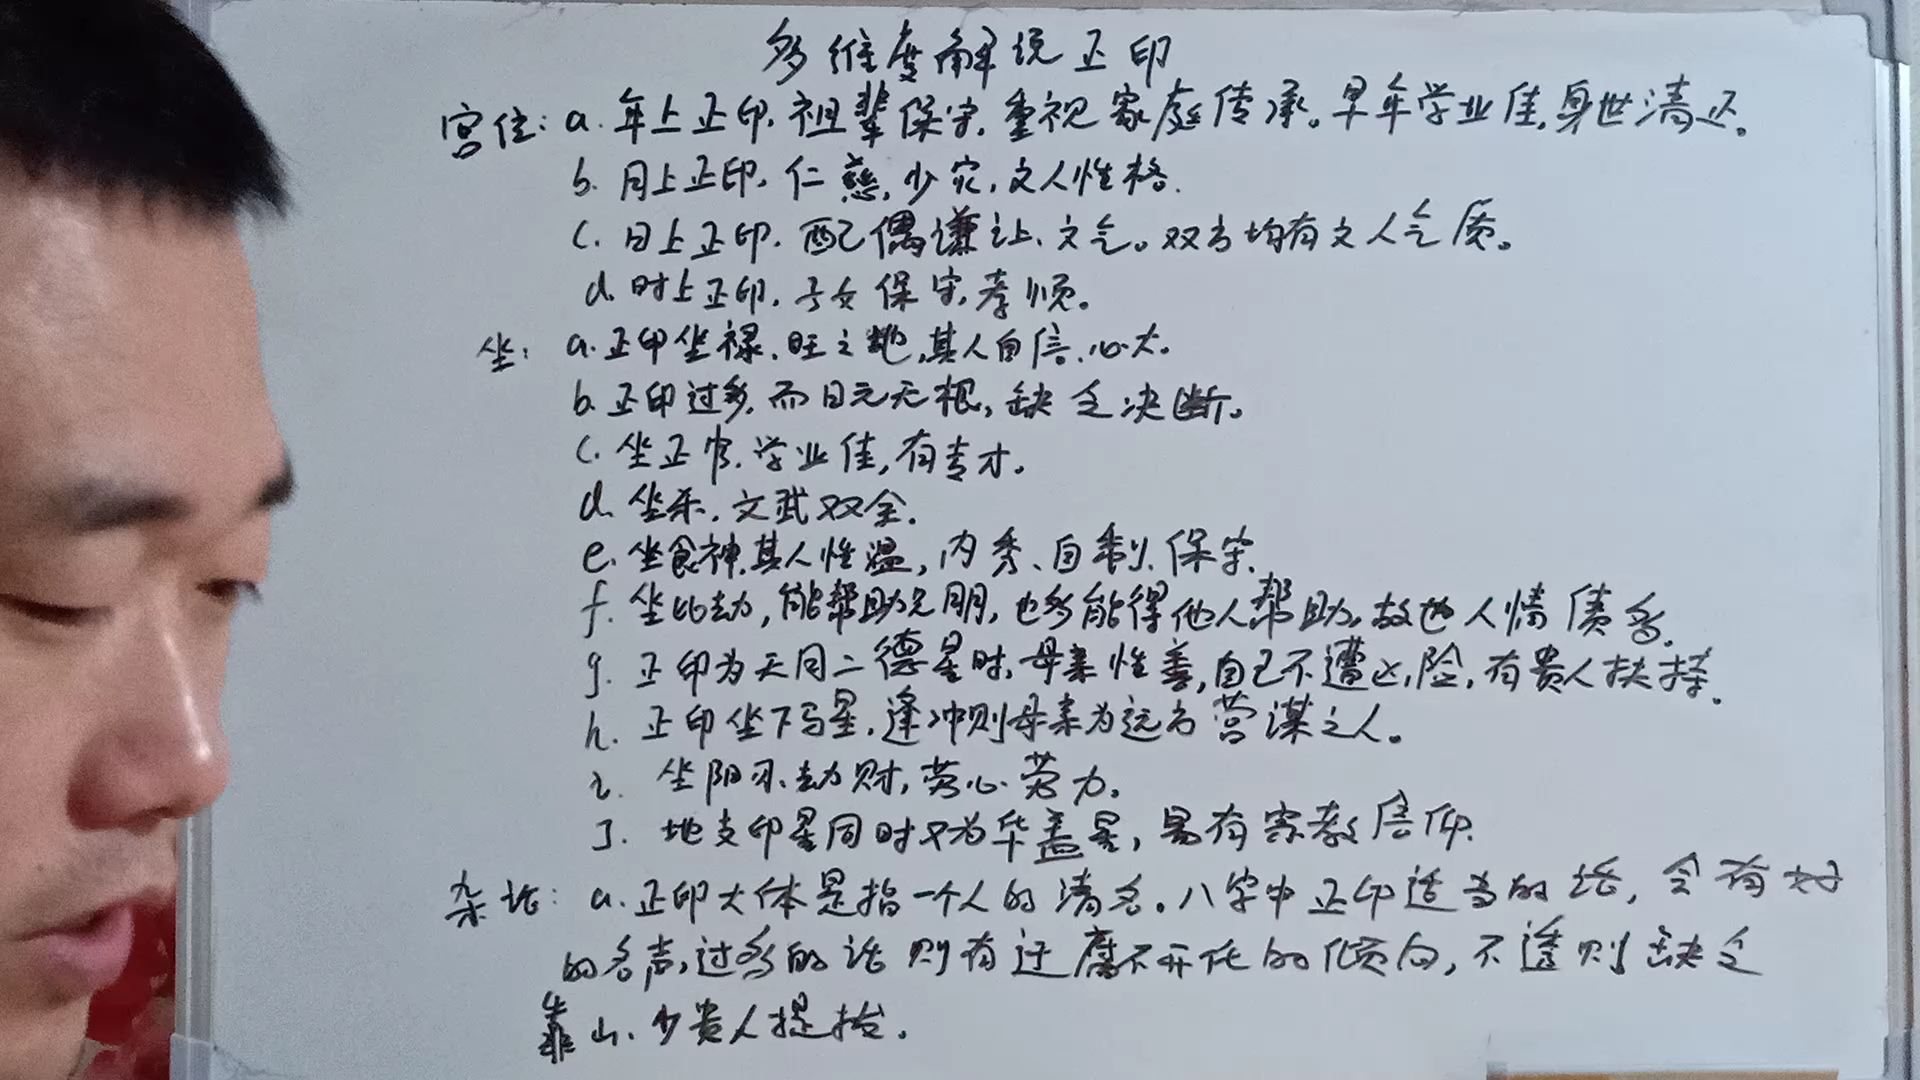 多维度解说正印
宫位: a. 年上正印, 祖辈保守, 重视家庭传承。早年学业佳, 身世清正。
b. 月上正印, 仁慈, 少灾, 文人性格.
c. 日上正印, 配偶谦让、文气。双方均有文人气质。
d. 时上正印, 子女保守, 孝顺。
坐: a. 正印坐禄、旺之地, 其人自信、心大。
b. 正印过多, 而日元无根, 缺乏决断。
c. 坐正官, 学业佳, 有专才。
d. 坐杀, 文武双全.
e. 坐食神, 其人性温, 内秀、自制、保守.
f. 坐比劫, 能帮助兄朋, 也多能得他人帮助, 故也人情债多.
g. 正印为天月二德星时, 母亲性善, 自己不遭凶险, 有贵人扶持.
h. 正印坐下马星, 逢冲则母亲为远方营谋之人。
i. 坐阳刃、劫财, 劳心劳力。
J. 地支印星同时又为华盖星, 易有宗教信仰.
杂论: a. 正印大体是指一个人的清名。八字中正印适当的话, 会有好
的名声, 过多的话则有迂腐不开化的倾向, 不透则缺乏
靠山、少贵人提抬。